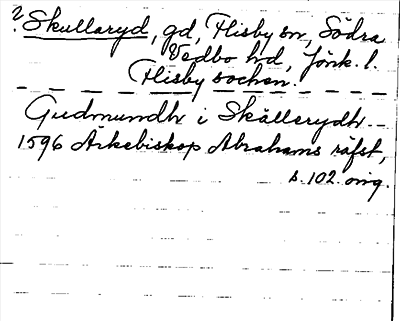 ? Skullaryd, gd, Flisby sn, Södra
Vedbo hd, Jönk. l.
Flisby socken.
Gudmundh i Skällerydh
1596 Ärkebiskop Abrahams räfst,
s. 102. orig.